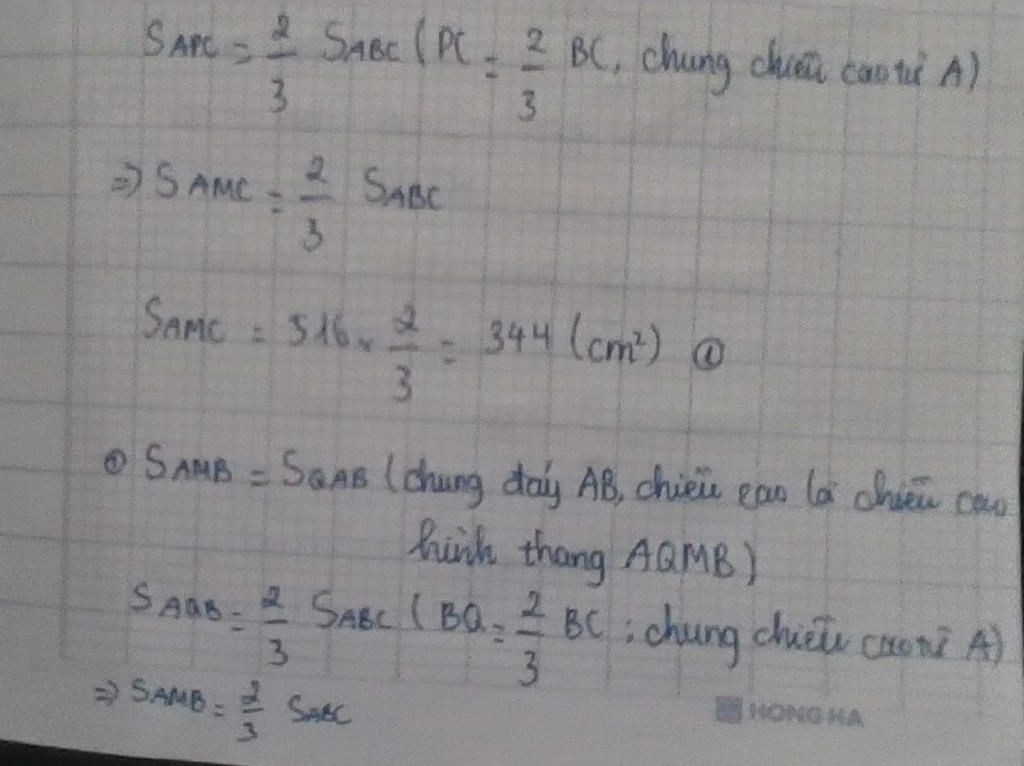 SAPC = 2/3 SABC ( PC = 2/3 BC, chung chiều cao từ A)
=> SAMC = 2/3 SABC
SAMC = 516 x 2/3 = 344 (cm²) ①
① SAMB = SQAB (chung đáy AB, chiều cao là chiều cao
hình thang AQMB)
SAQB = 2/3 SABC ( BQ = 2/3 BC ; chung chiều cao từ A)
=> SAMB = 2/3 SABC
HONG HA